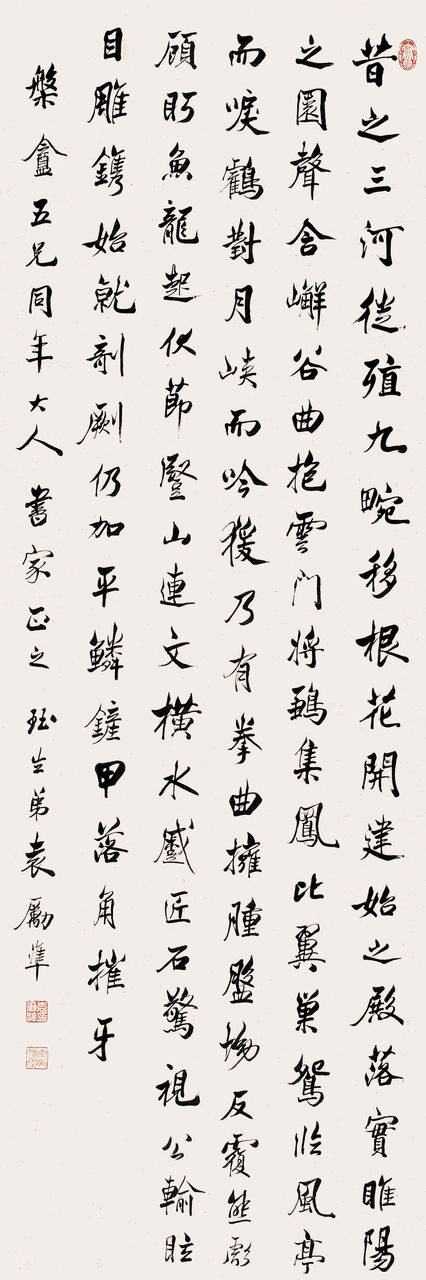 昔之三河徙殖九畹移根花開建始之殿落實睢陽
之園聲含嶰谷曲抱雲門將鶵集鳳比翼巢鴛臨風亭
而唳鶴對月峽而吟猨乃有拳曲擁腫盤坳反覆熊彪
顧盼魚龍起伏節豎山連文橫水蹙匠石驚視公輸眩
目雕鐫始就剞劂仍加平鱗鏟甲落角摧牙
槃盦五兄同年大人書家正之 珏生弟袁勵準